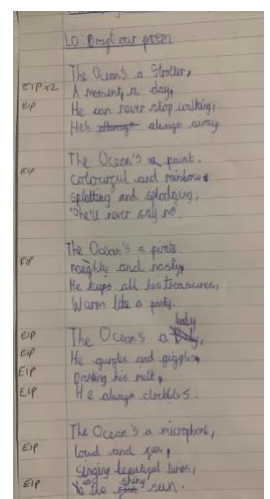 LO: Draft our poem
EIP x2 The Ocean's a Stroller,
A moment, a day,
EIP He can never stop walking,
He's always away.
EIP The Ocean's a paint.
colourful and rainbow
splatting and splodging,
She'll never say no.
EIP The Ocean's a pirate
naughty and nasty,
He keeps all his treasures,
Warm like a pasty.
EIP The Ocean's a baby,
EIP He gurgles and giggles,
EIP Drinking his milk,
EIP He always dribbles.
The Ocean's a microphone,
EIP loud and fun,
singing beautiful tunes,
EIP in the shiny sun.